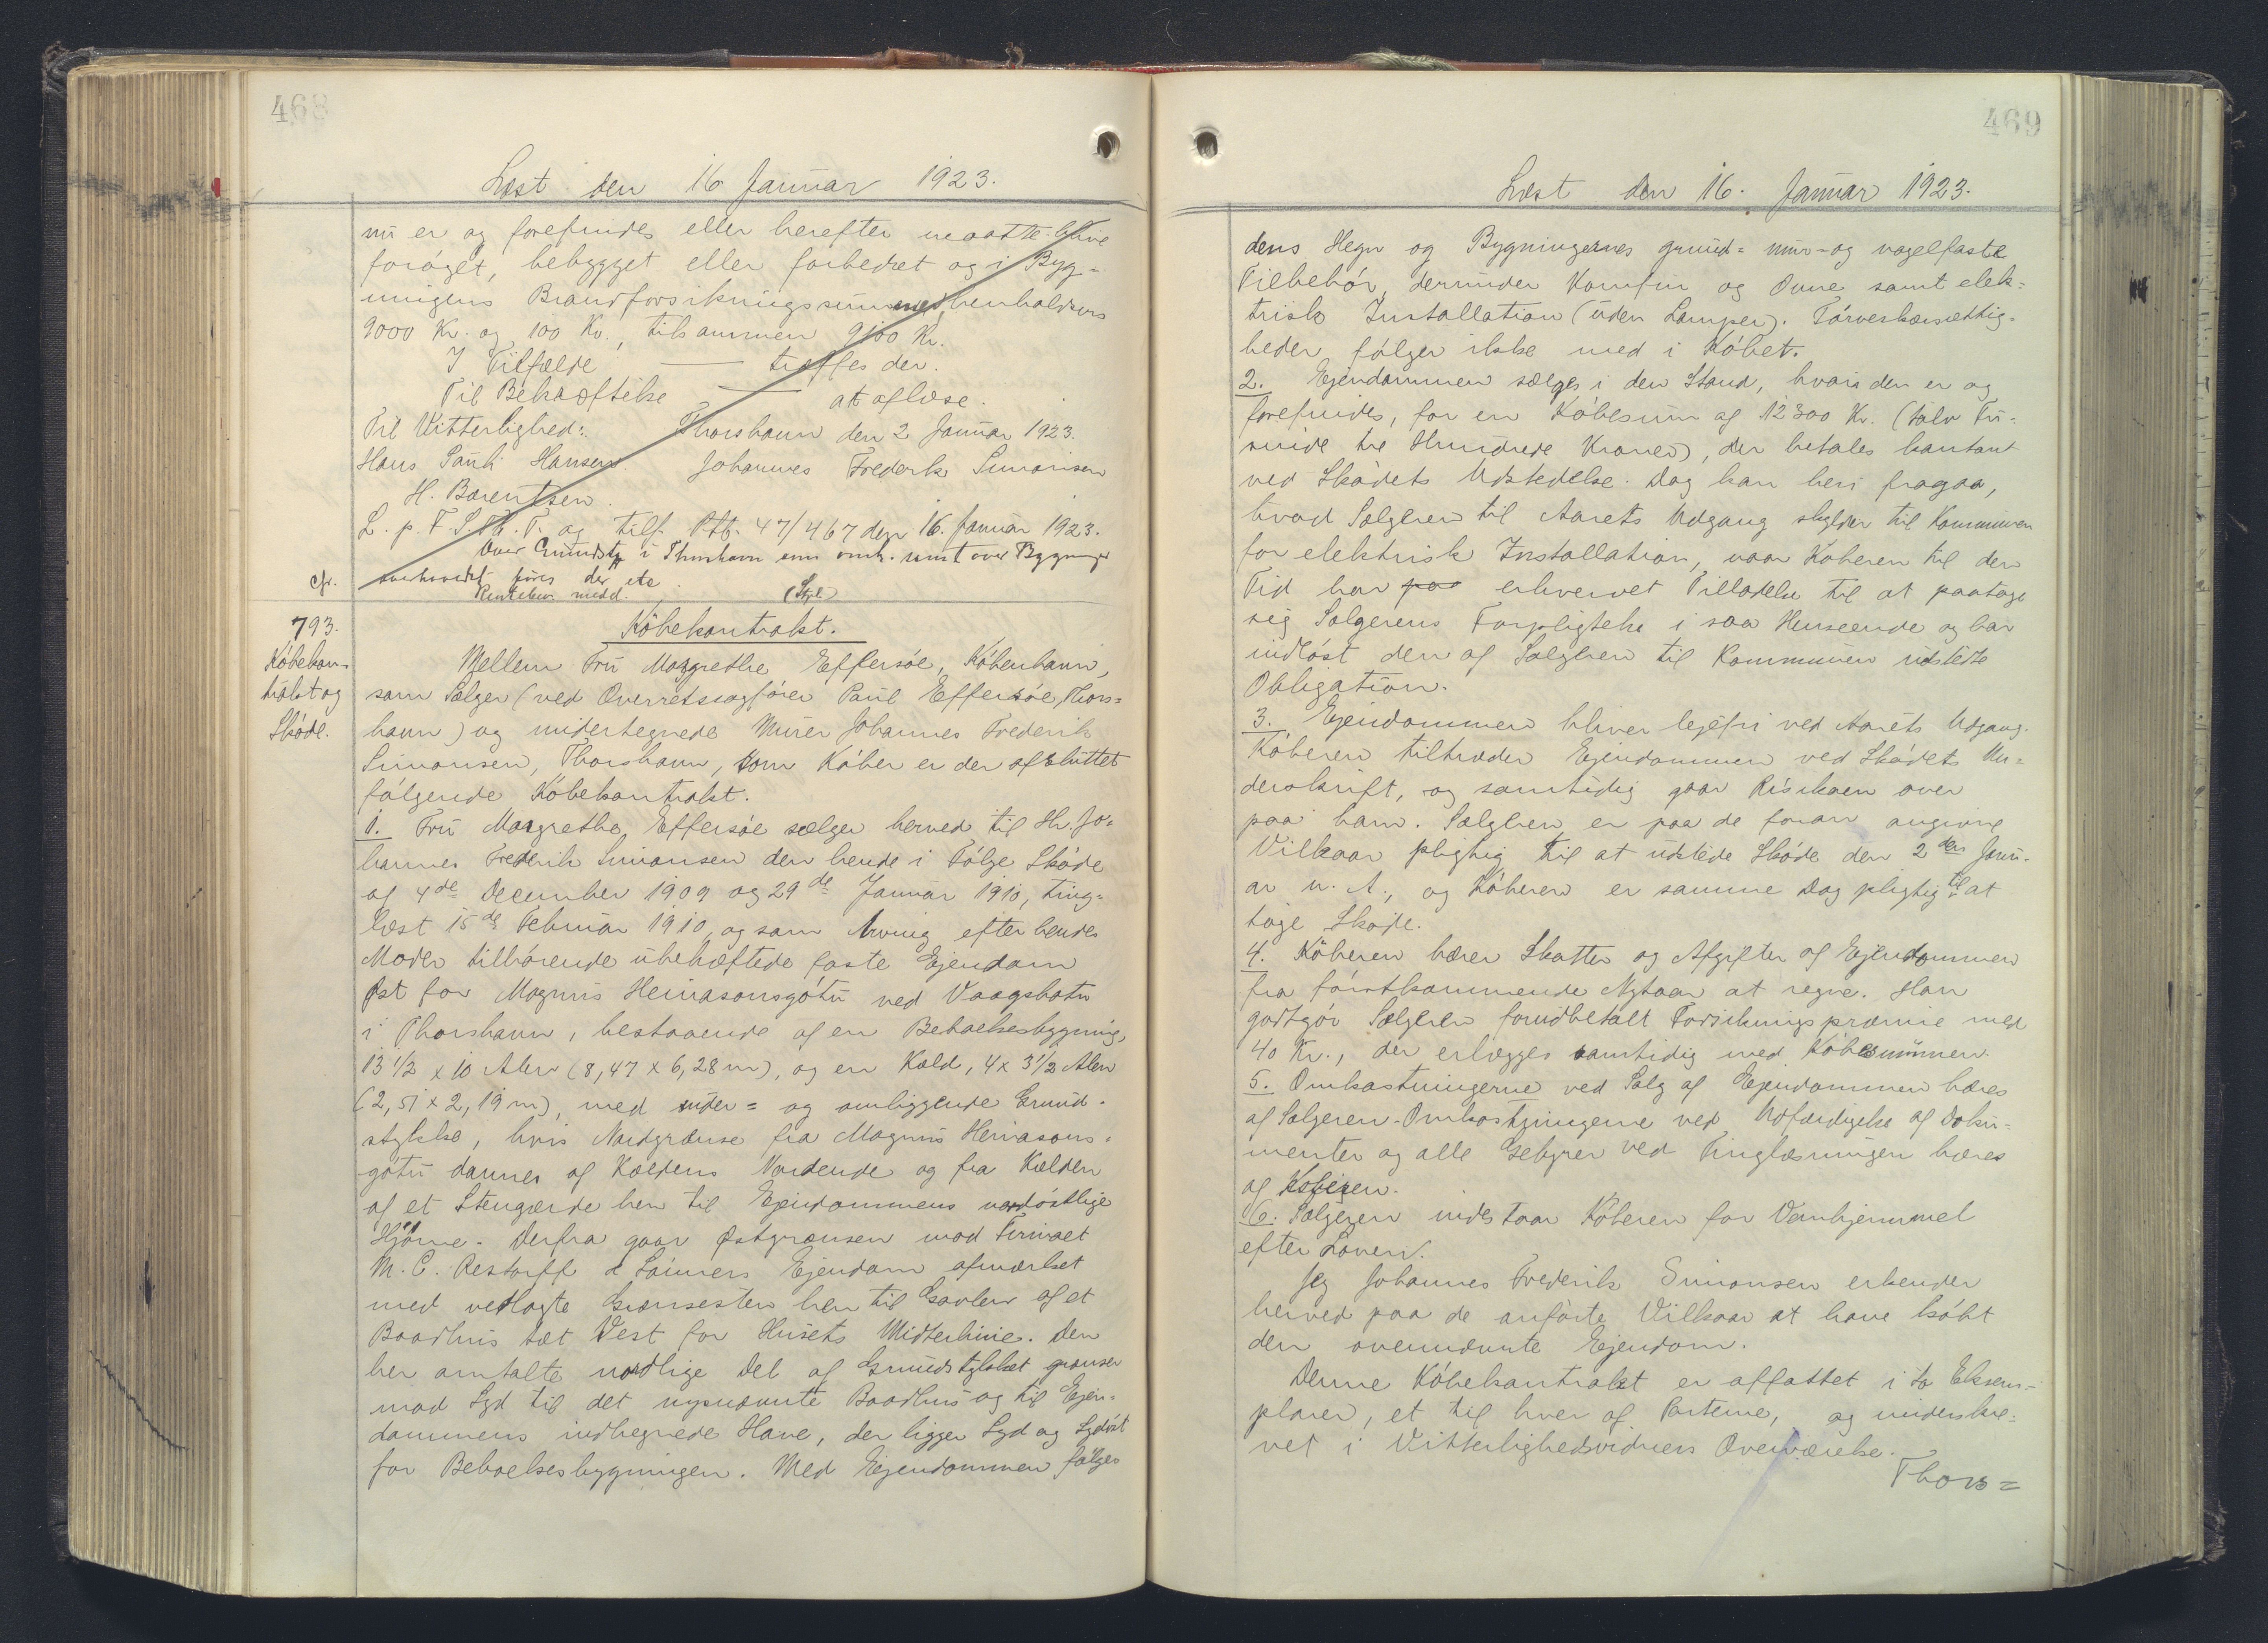 468
Læst den 16 Januar 1923.
nu er og forefindes eller herefter maatte blive
forøget, bebygget eller forbedret og i Byg=
nigens Brandforsikringssummer henholdsvis
9000 Kr. og 100 Kr., tilsammen 9100 Kr.
I Tilfælde — træffes der.
Til Bekræftelse — at aflæse.
Til Vitterlighed: Thorshavn den 2 Januar 1923.
Hans Pauli Hansen. Johannes Frederik Simonsen
H. Barentsen.
L. p. F. S. O. T. og tilf. Ptb. 47/467 den 16. Januar 1923.
Over Grundst i Thorshavn som omh. samt over Bygninger
føres der etc
cfr.
medd. (Stpl.)
793.
Købekon=
trakt og
Skøde.
Købekontrakt.
Mellem Fru Margrethe Effersøe, København,
som Sælger (ved Overretssagfører Paul Effersøe, Thors=
havn) og undertegnede Murer Johannes Frederik
Simonsen, Thorshavn, som Køber er der afsluttet
følgende Købekontrakt.
1. Fru Margrethe Effersøe sælger herved til Hr. Jo=
hannes Frederik Simonsen den hende i Følge Skøde
af 4de December 1909 og 29de Januar 1910, ting=
læst 15de Februar 1910, og som Arving efter hendes
Moder tilhørende ubehæftede faste Ejendom
Øst for Magnus Heinasonsgøtu ved Vaagsbotn
i Thorshavn, bestaaende af en Beboelsesbygning,
13 1/2 x 10 Alen (8,47 x 6,28 m), og en Kæld, 4 x 3 1/2 Alen
(2,51 x 2,19 m), med under= og omliggende Grund=
stykke, hvis Nordgrænse fra Magnus Heinasons=
gøtu dannes af Kældens Nordende og fra Kælden
af et Stengærde hen til Ejendommens nordøstlige
Hjørne. Derfra gaar Østgrænsen mod Firmaet
M. C. Restorff & Sønners Ejendom afmærket
med vedtagte Grænsesten hen til Gavlen af et
Baadhus tæt Vest for Husets Midterlinie. Den
her omtalte nordlige Del af Grundstykket grænser
mod Syd til det nysnævnte Baadhus og til Ejen=
dommens indhegnede Have, der ligger Syd og Sydøst
for Beboelsesbygningen. Med Ejendommen følger
469
Læst den 16. Januar 1923.
dens Hegn og Bygningernes grund= mur= og nagelfaste
Tilbehør, derunder Komfur og Ovne samt elek=
trisk Installation (uden Lamper). Tørveskærsrettig=
heder følger ikke med i Købet.
2. Ejendommen sælges i den Stand, hvori den er og
forefindes, for en Købesum af 12300 Kr. (tolv Tu=
sinde tre Hundrede Kroner), der betales kontant
ved Skødets Udstedelse. Dog kan heri fragaa,
hvad Sælgeren til Aarets Udgang skylder til Kommunen
for elektrisk Installation, naar Køberen til den
Tid har paa erhvervet Tilladelse til at paatage
sig Sælgerens Forpligtelse i saa Henseende og har
indløst den af Sælgeren til Kommunen udstedte
Obligation.
3. Ejendommen bliver lejefri ved Aarets Udgang.
Køberen tiltræder Ejendommen ved Skødets Un=
derskrift, og samtidig gaar Risikoen over
paa ham. Sælgeren er paa de foran angivne
Vilkaar pligtig til at udstede Skøde den 2den Janu=
ar n. A., og Køberen er samme Dag pligtig til at
tage Skøde.
4. Køberen bærer Skatter og Afgifter af Ejendommen
fra førstkommende Nytaar at regne. Han
godtgør Sælgeren forudbetalt Forsikringspræmie med
40 Kr., der erlægges samtidig med Købesummen.
5. Omkostningerne ved Salg af Ejendommen bæres
af Sælgeren. Omkostningerne ved Udfærdigelse af Doku=
menter og alle Gebyrer ved Tinglæsningen bæres
af Køberen.
6. Sælgeren indestaar Køberen for Vanhjemmel
efter Loven.
Jeg Johannes Frederik Simonsen erkender
herved paa de anførte Vilkaar at have købt
den ovennævnte Ejendom.
Denne Købekontrakt er affattet i to Eksem=
plarer, et til hver af Parterne, og underskre=
vet i Vitterlighedsvidners Overværelse.
Thors=